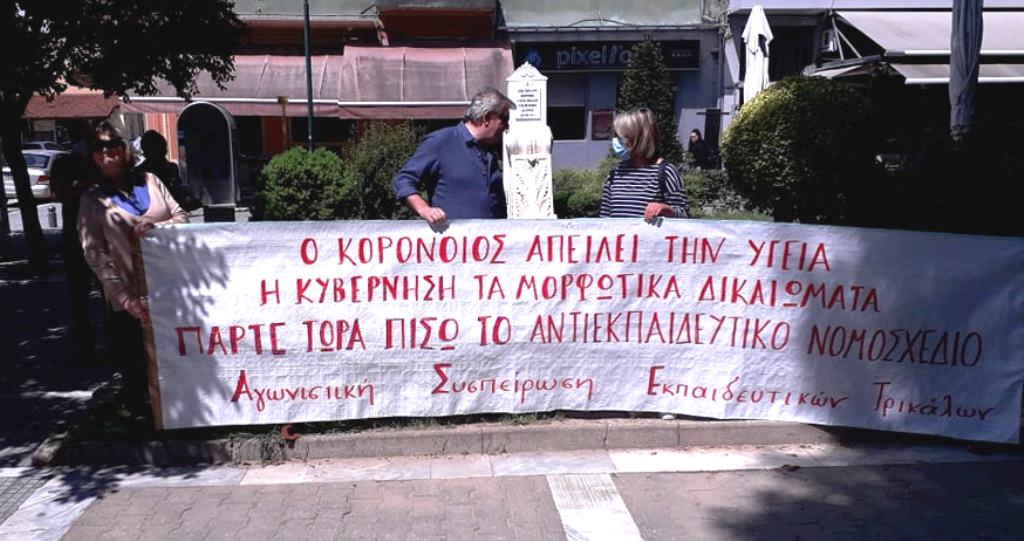 pixel
Ο ΚΟΡΟΝΟΙΟΣ ΑΠΕΙΛΕΙ ΤΗΝ ΥΓΕΙΑ
Η ΚΥΒΕΡΝΗΣΗ ΤΑ ΜΟΡΦΩΤΙΚΑ ΔΙΚΑΙΩΜΑΤΑ
ΠΑΡΤΕ ΤΩΡΑ ΠΙΣΩ ΤΟ ΑΝΤΙΕΚΠΑΙΔΕΥΤΙΚΟ ΝΟΜΟΣΧΕΔΙΟ
Αγωνιστική Συσπείρωση Εκπαιδευτικών Τρικάλων